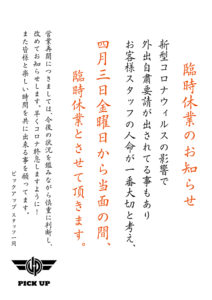 臨時休業のお知らせ
新型コロナウィルスの影響で
外出自粛要請が出されてる事もあり
お客様スタッフの人命が一番大切と考え、
四月三日金曜日から当面の間、
臨時休業とさせて頂きます。
営業再開につきましては、今後の状況を鑑みながら慎重に判断し、
改めてお知らせします。早くコロナ終息しますように！
また皆様と楽しい時間を共に出来る事を願ってます。
ピックアップ スタッフ一同
PICK UP